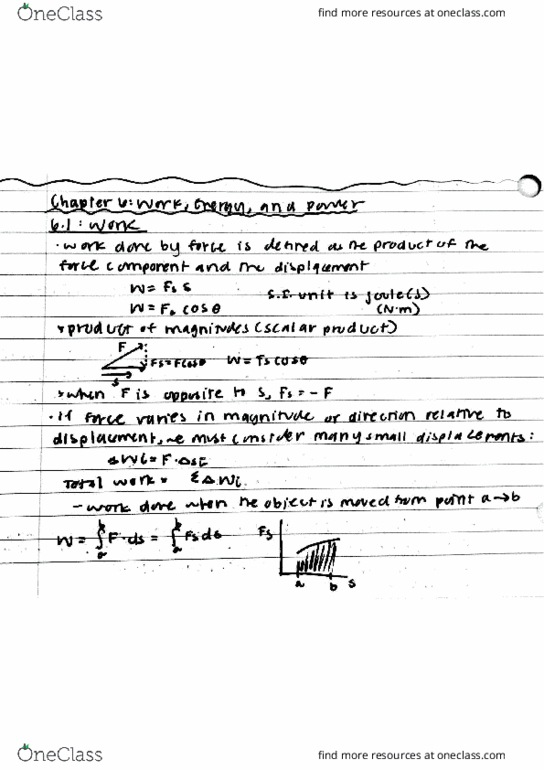 OneClass
find more resources at oneclass.com
Chapter 6: Work, Energy, and power
6.1: Work
· Work done by force is defined as the product of the
force component and the displacement
W = Fs s
S.I. unit is joule(s)
W = F. cosθ
(N·m)
product of magnitudes (scalar product)
F
Fs = Fcosθ
W = Fs cosθ
s
when F is opposite to s, Fs = - F
· If force varies in magnitude or direction relative to
displacement, we must consider many small displacements:
ΔWi = F · Δsi
Total work = ΣΔWi
- work done when the object is moved from point a→b
W = ∫ab F·ds = ∫ab Fs ds
Fs
a b s
OneClass
find more resources at oneclass.com